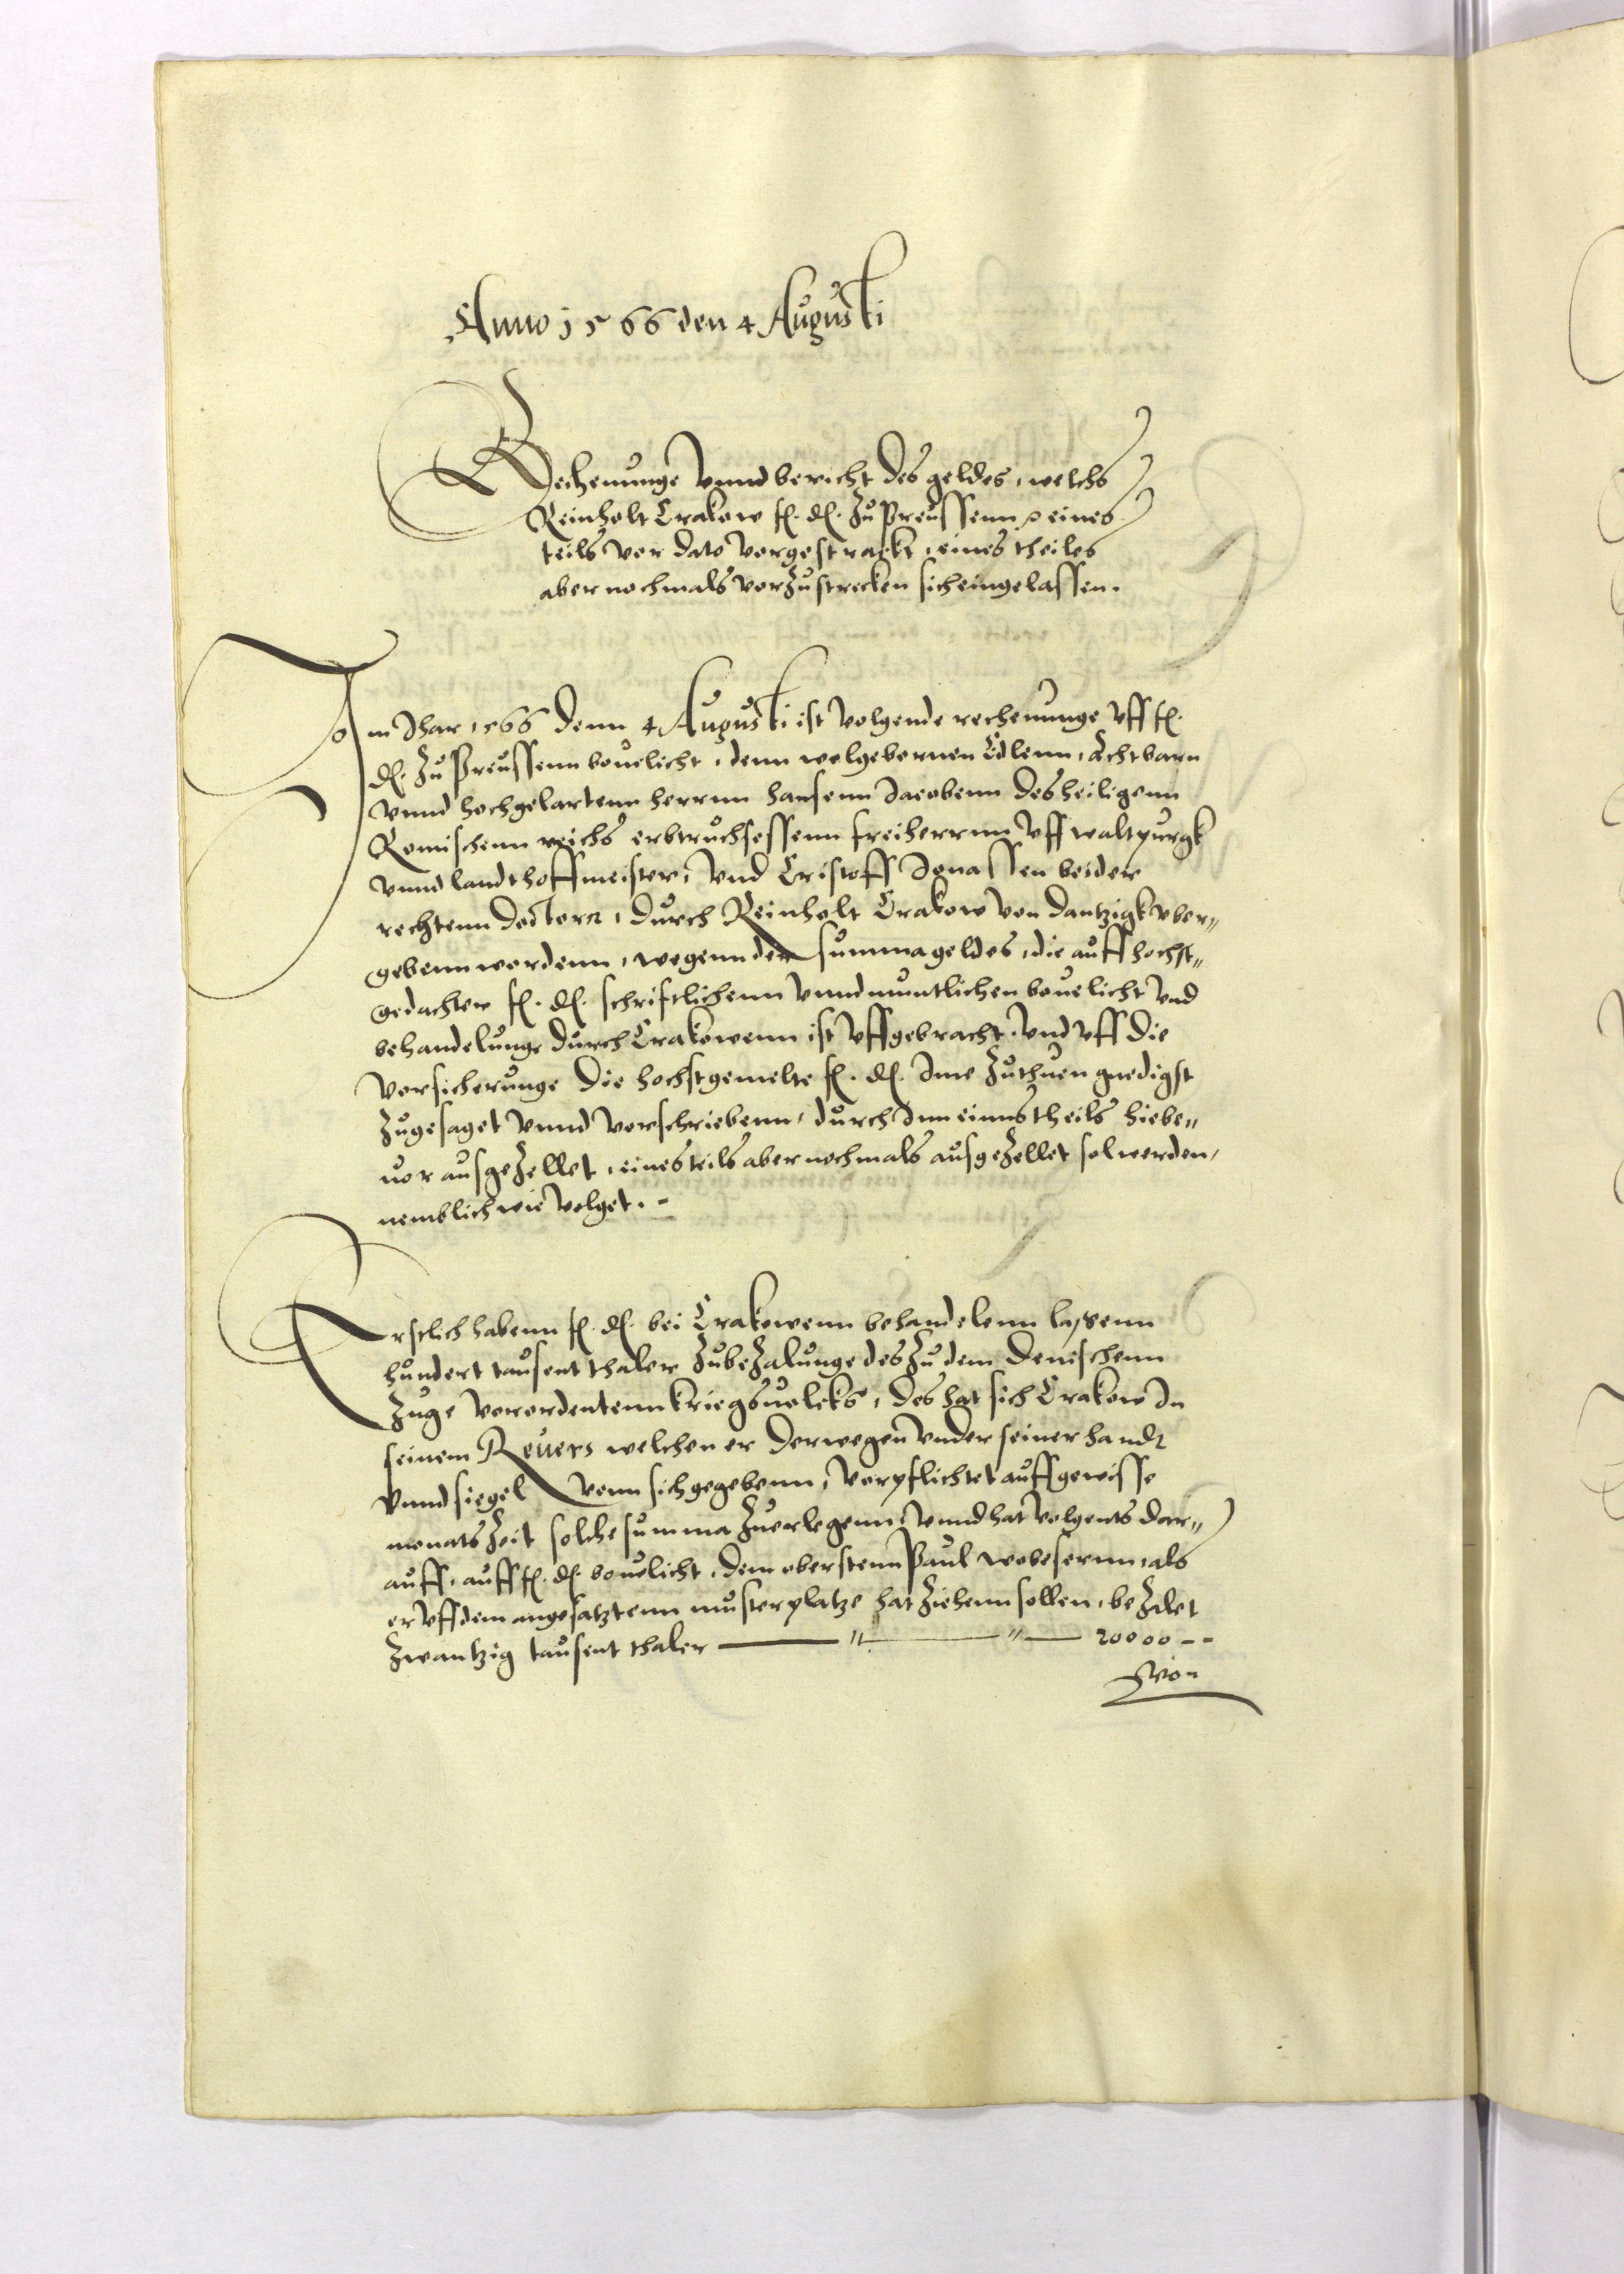 Anno 1566 den 4 Augusti
Rechenunge vnnd bericht des geldes, welchs
Reinholt Crakow f. d. zu Preussenn eines
teils vor dato vorgestrackt, eines theiles
aber nochmals vorzustrecken sich eingelassen.
Im Jhar 1566 denn 4 Augusti ist volgende rechenunge vff f.
d. zu Preussenn beuelicht, denn wolgebornen Edlenn, Achtbarn
vnnd hochgelartenn herrnn hansenn Jacobenn des heiligenn
Romischenn reichs erbtruchsessenn freiherrnn vff waltpurgk
vnnd landthoffmeister, vnd Cristoff Jonassen beider
rechtenn doctorn, durch Reinholt Crakow von dantzigk vber„
gebenn wordenn, wegenn der summa geldes, die auff hochst„
gedachter f. d. schriftlichenn vnnd muntlichen beuelicht vnd
behandelunge durch Crakowenn ist vffgebracht, vnd vff die
vorsicherunge die hochstgemelte f. d. Ime zuthuen gnedigst
zugesaget vnnd vorschriebenn, durch Inn einnstheils hieben„
uor ausgezellet, einesteils aber nochmals ausgezellet sol werden,
nemblich wie volget. -
Erstlich habenn f. d. bei Crakowenn behandelenn lassenn
hundert tausent thaler zubezalunge des zu dem Denischenn
zuge verordentenn kriegsuolcks, des hat sich Crakow In
seinem Reuers welchen er derwegen vnder seiner handt
vnnd siegel vonn sich gegebenn, vorpflichtet auff gewisse
monats zeit solche summa zuerlegenn, vnnd hat volgents dar„
auff, auff f. d. beuelicht, dem oberstenn Paul wobesernn, als
er vff dem angesatztenn musterplatze hat ziehenn sollen, bezalet
zwantzig tausent thaler — „ — „ — 20000 --
Von